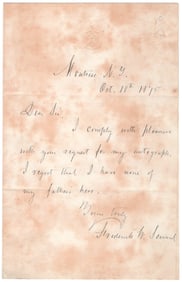 Montrose, N.Y.
Oct. 18th 1895
Dear Sir.
I comply with pleasure
with your request for my autograph.
I regret that I have none of
my fathers here.
Yours truly
Frederick W. Seward